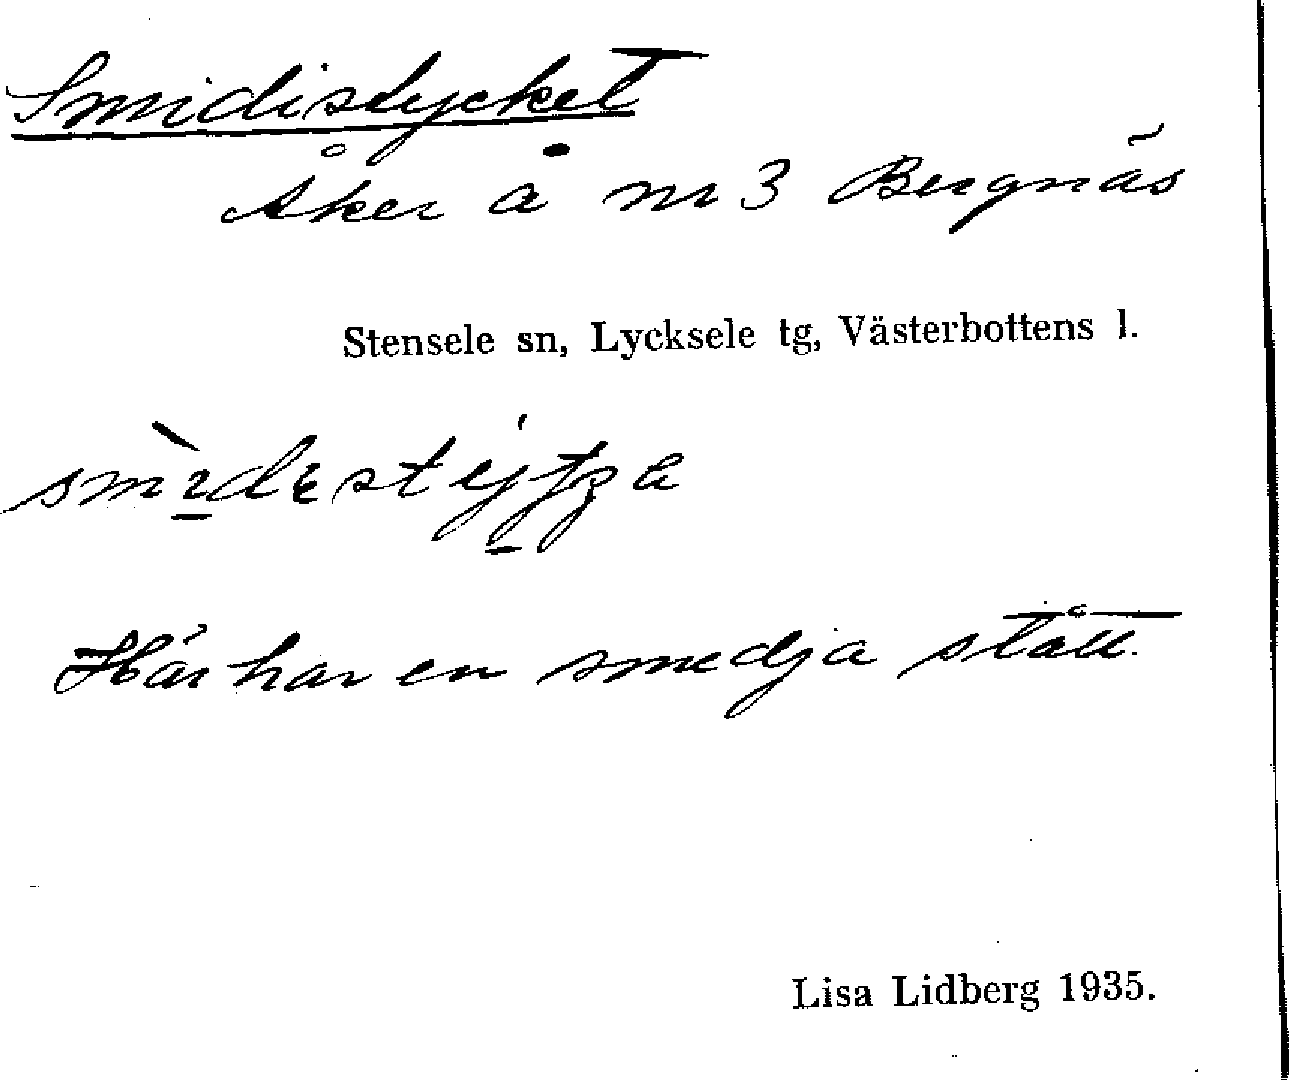 Smidistycket
Åker å nr 3 Bergnäs
Stensele sn, Lycksele tg, Västerbottens l.
Här har en smedja stått.
Lisa Lidberg 1935.